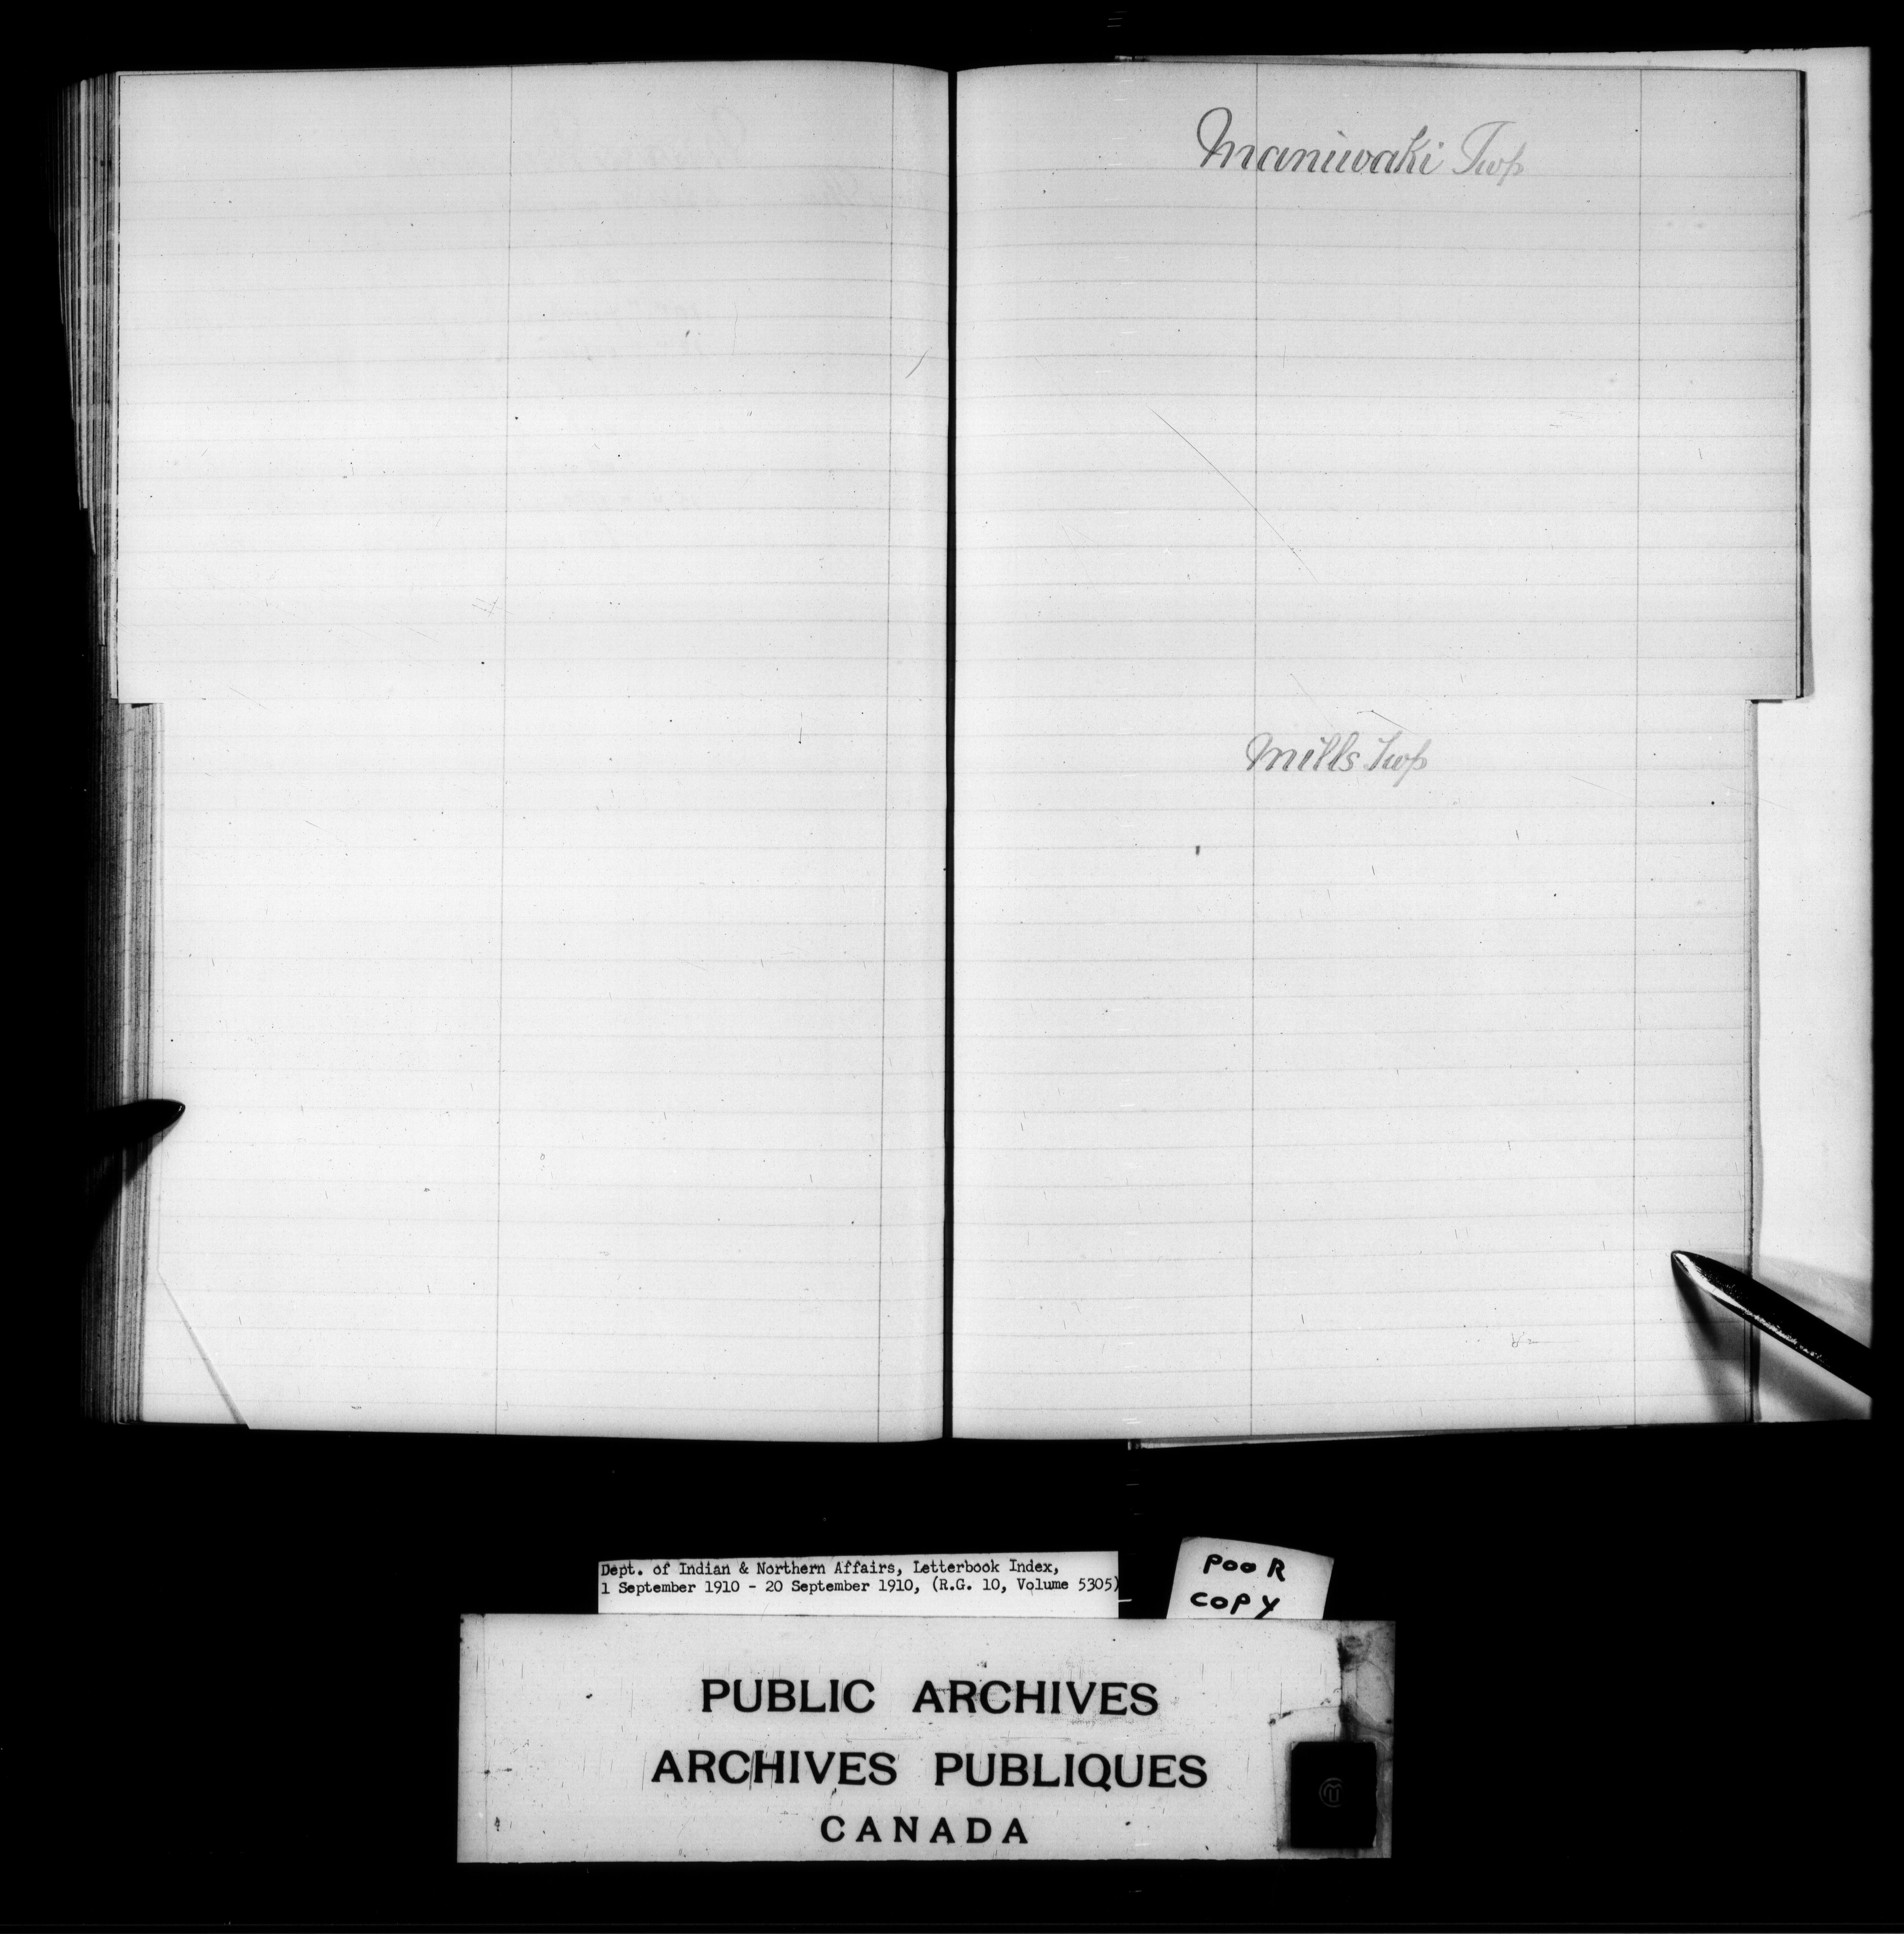 Maniwaki Twp
Mills Twp
Dept. of Indian & Northern Affairs, Letterbook Index,
1 September 1910 - 20 September 1910, (R.G. 10, Volume 5305)
POOR
COPY
PUBLIC ARCHIVES
ARCHIVES PUBLIQUES
CANADA